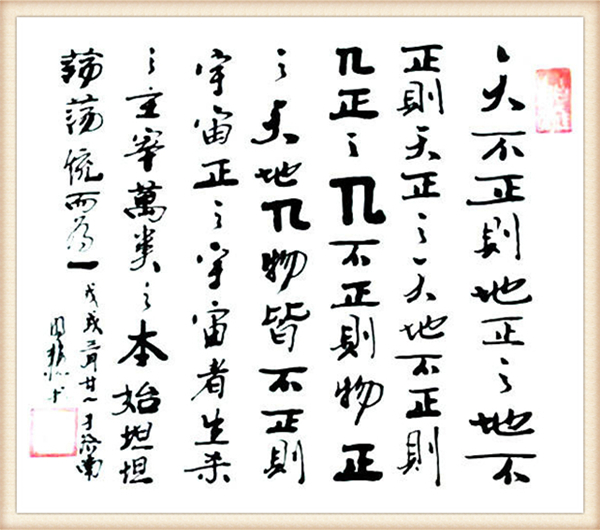 天不正則地正之地不
正則天正之天地不正則
兀正之兀不正則物正
之天地兀物皆不正則
宇宙正之宇宙者生杀
之主宰萬类之本始坦坦
蕩蕩恍而為一
戊戌二月廿八于济南
周